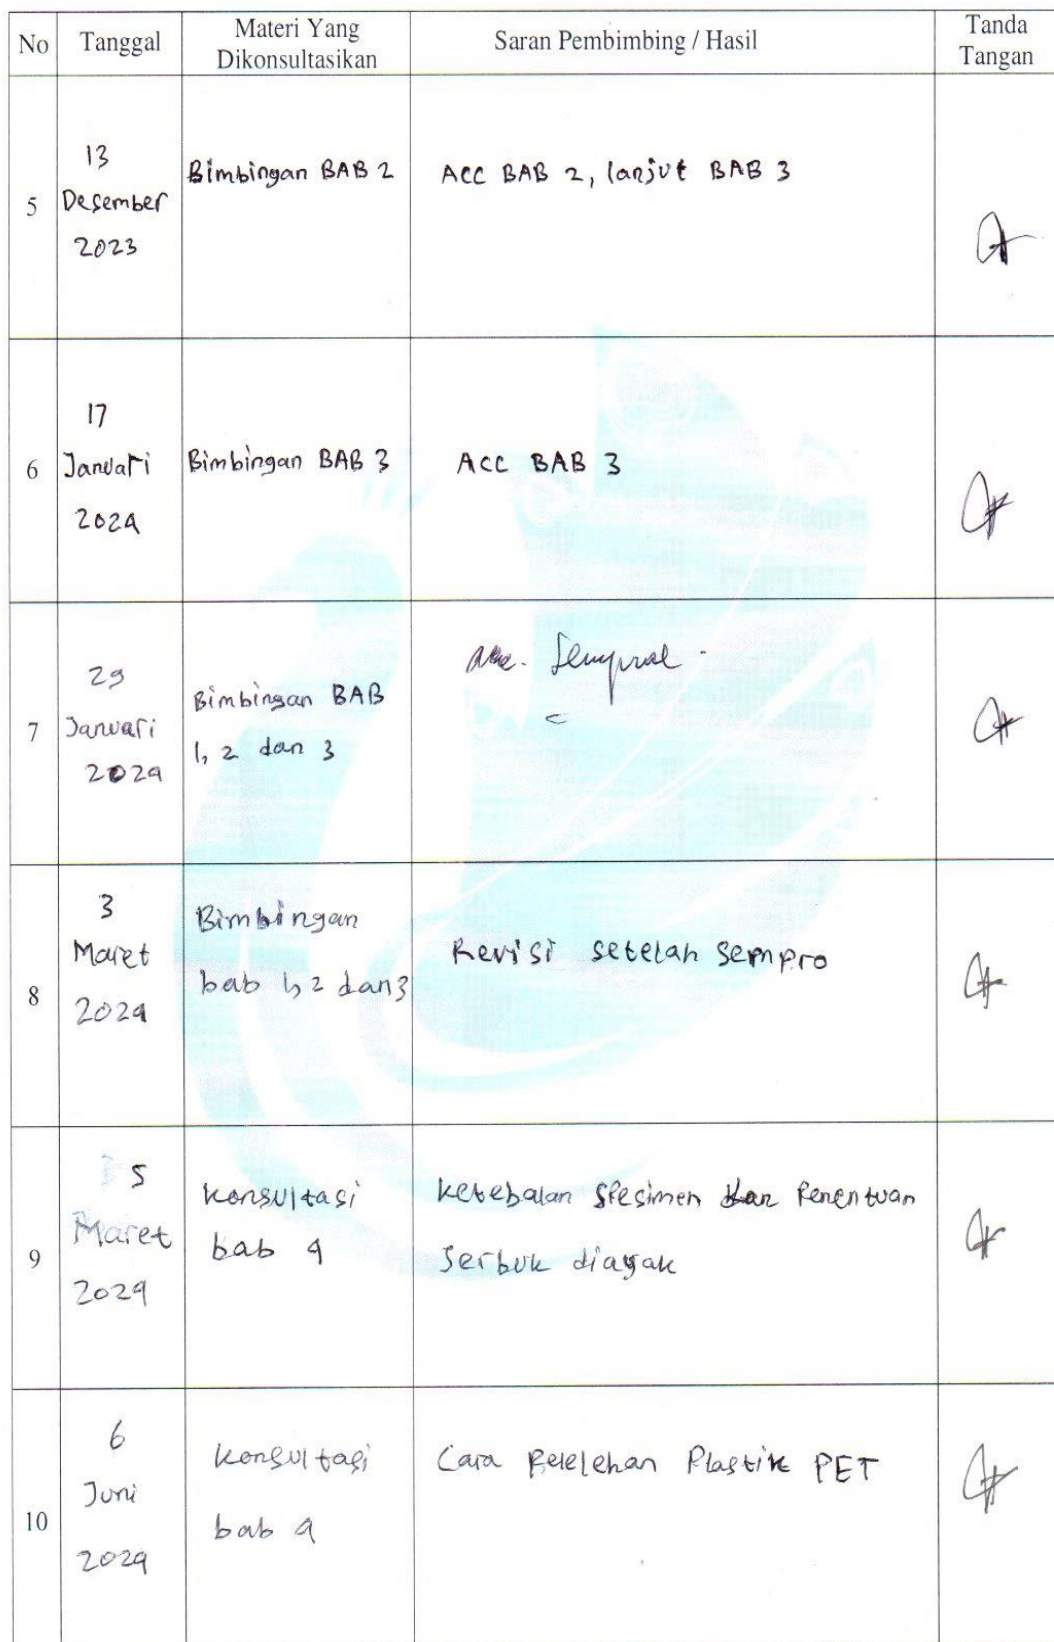 No Tanggal Materi Yang Dikonsultasikan Saran Pembimbing / Hasil Tanda Tangan
5
13
Desember
2023
Bimbingan BAB 2
ACC BAB 2, lanjut BAB 3
6
17
Januari
2024
Bimbingan BAB 3
ACC BAB 3
7
29
Januari
2024
Bimbingan BAB
1, 2 dan 3
8
3
Maret
2024
Bimbingan
bab 1, 2 dan 3
Revisi setelah sempro
9
5
Maret
2024
Konsultasi
bab 4
Ketebalan spesimen dan penentuan
serbuk diayak
10
6
Juni
2024
Konsultasi
bab 4
Cara Pelelehan Plastik PET